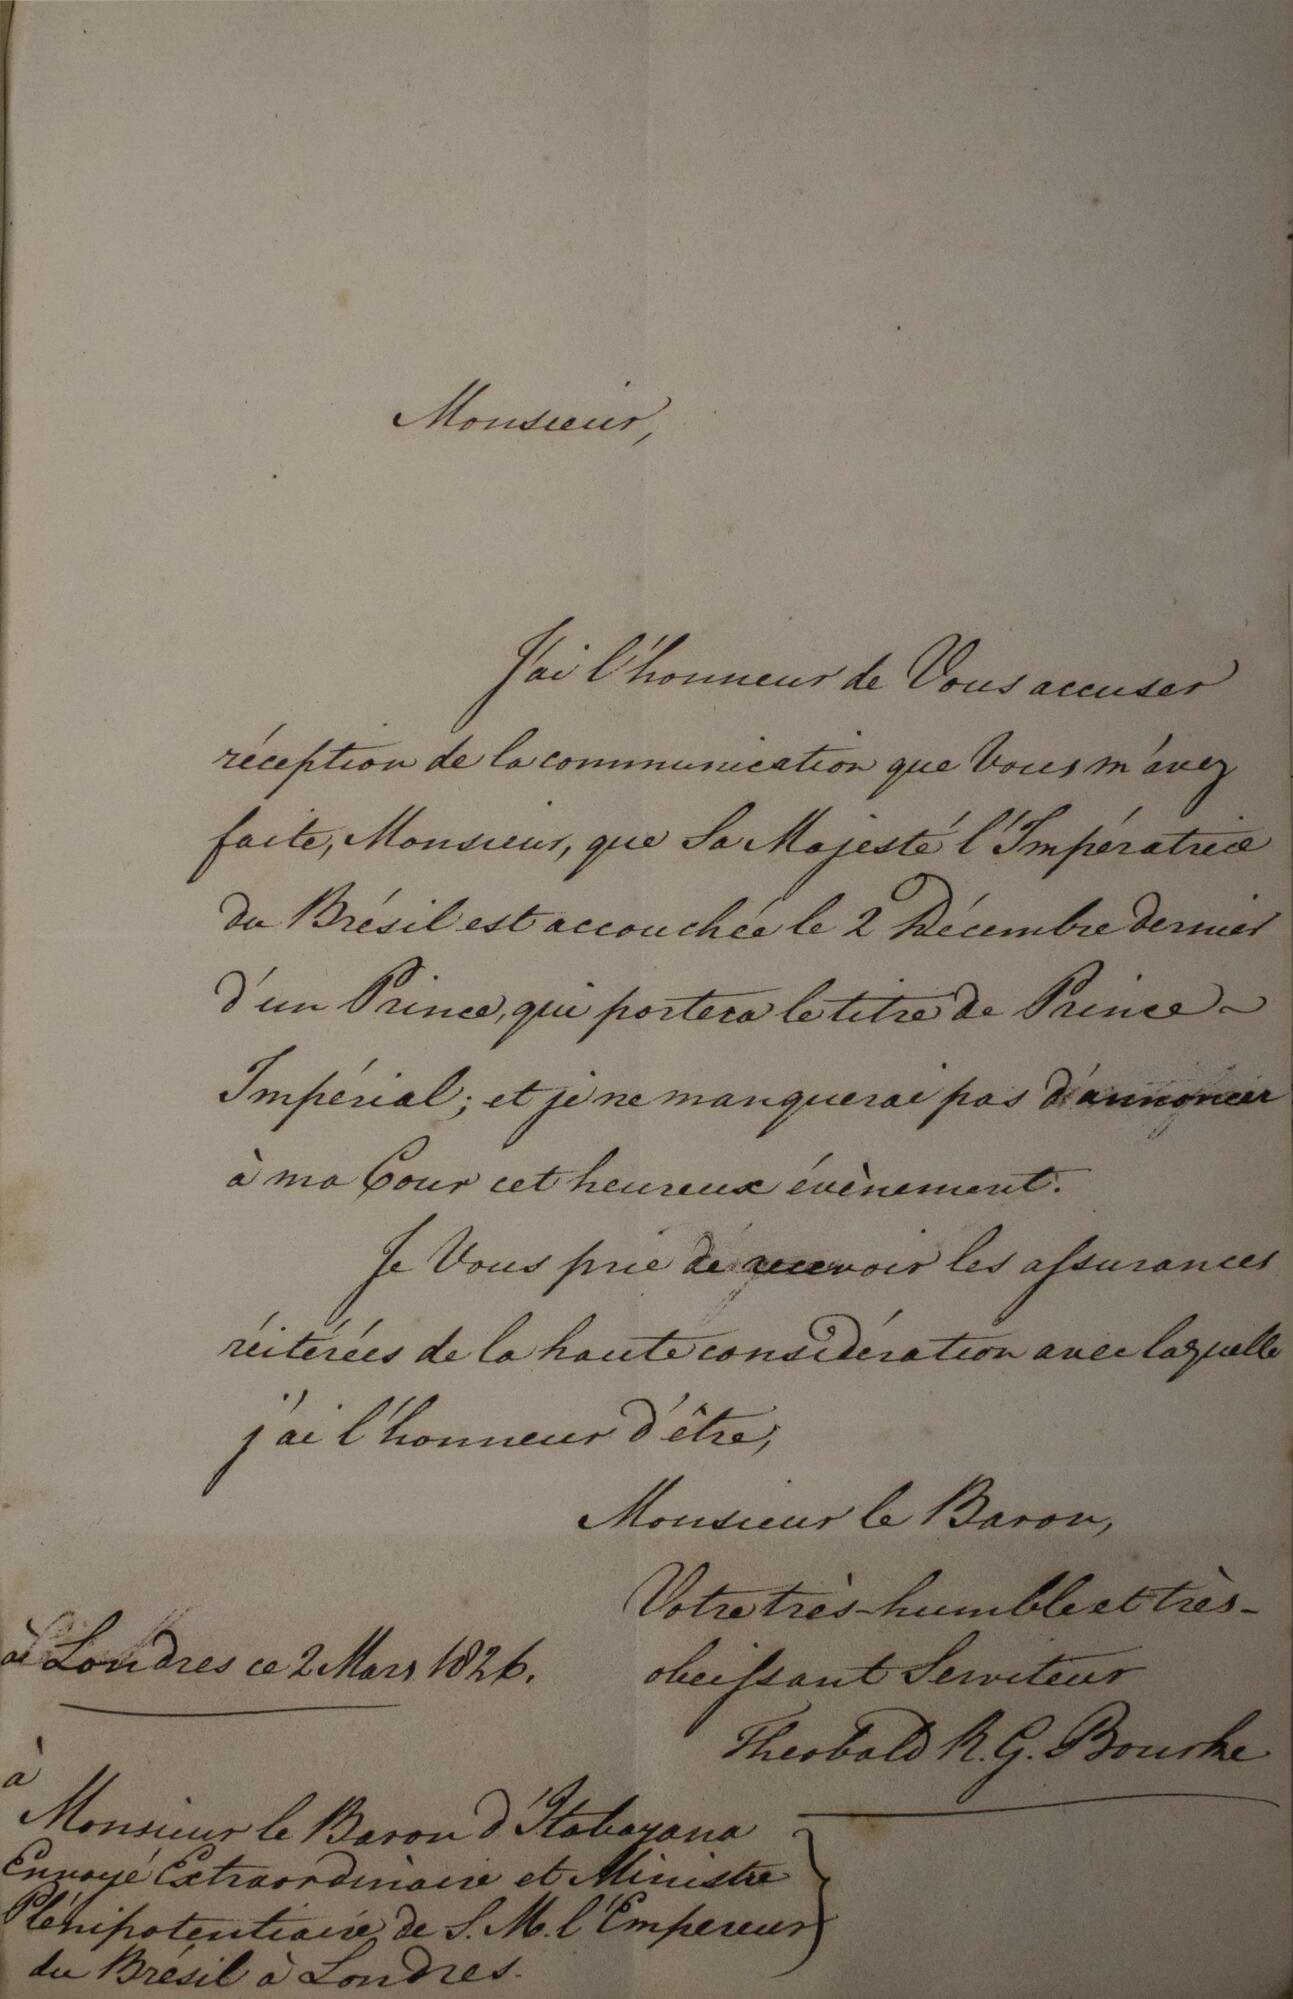 Monsieur,
J'ai l'honneur de Vous accuser
réception de la communication que Vous m'avez
faite, Monsieur, que Sa Majesté l'Impératrice
du Brésil est accouchée le 2 Décembre dernier
d'un Prince, qui portera le titre de Prince
Impérial; et je ne manquerai pas d'annoncer
à ma Cour cet heureux évènement.
Je Vous prie de recevoir les assurances
réitérées de la haute considération avec laquelle
j'ai l'honneur d'être,
Monsieur le Baron,
Votre très-humble et très-
obeissant Serviteur
à Londres ce 2 Mars 1826.
Theobald R. G. Bourke
à
Monsieur le Baron d'Itabayana
Envoyé Extraordinaire et Ministre
Plénipotentiaire de S. M. l'Empereur
du Brésil à Londres.